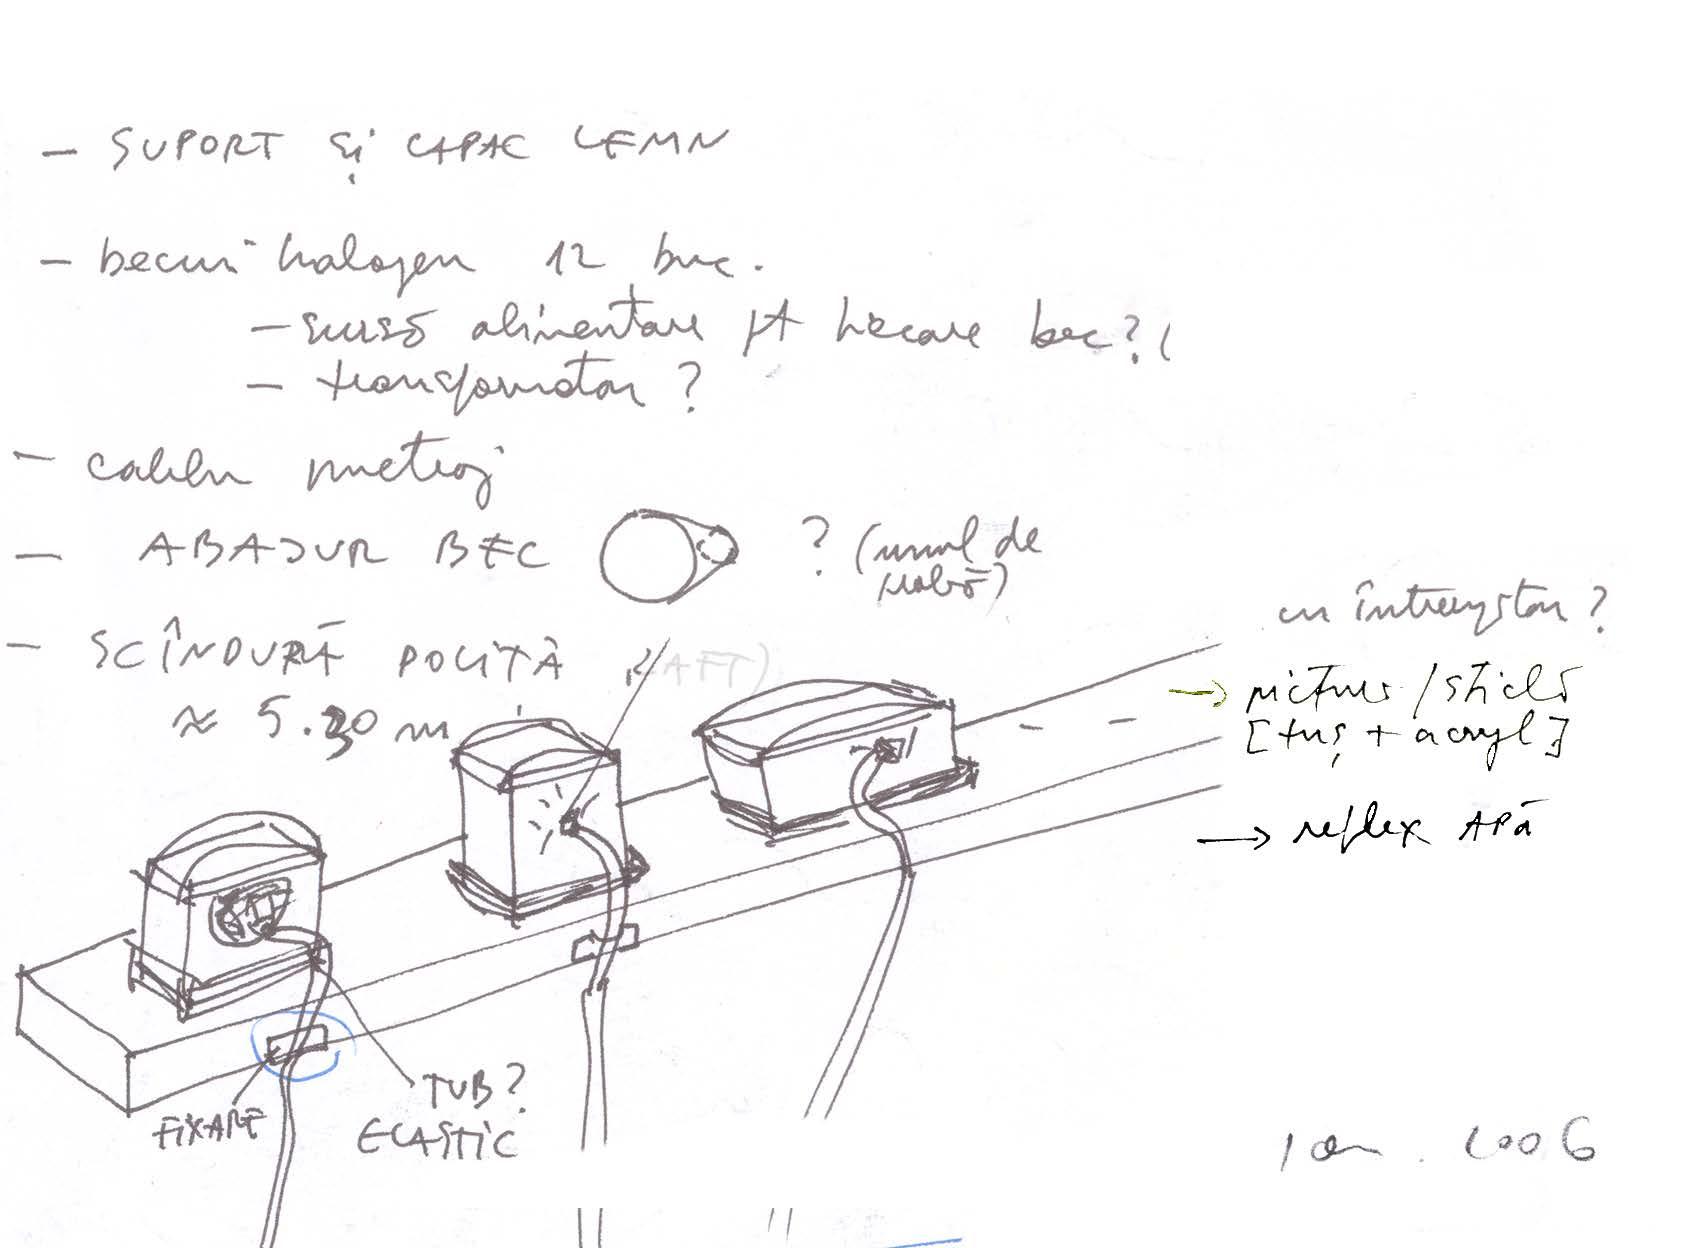 - SUPORT și CAPAC LEMN
- becuri halogen 12 buc.
- sursă alimentare pt fiecare bec?
- transformator ?
- cablu metraj
- ABAJUR BEC ? (unul de
probă)
- SCÎNDURĂ POLIȚĂ (RAFT)
≈ 5.30 m
cu întrerupător ?
→ pictură / sticlă
[tuș + acryl]
→ reflex APĂ
FIXARE
TUB ?
ELASTIC
ian. 2006